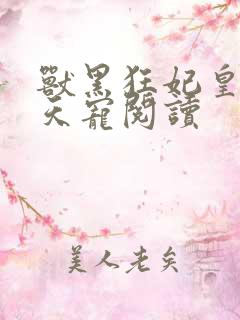 獸黑狂妃皇
天寵閱讀
美人老矣